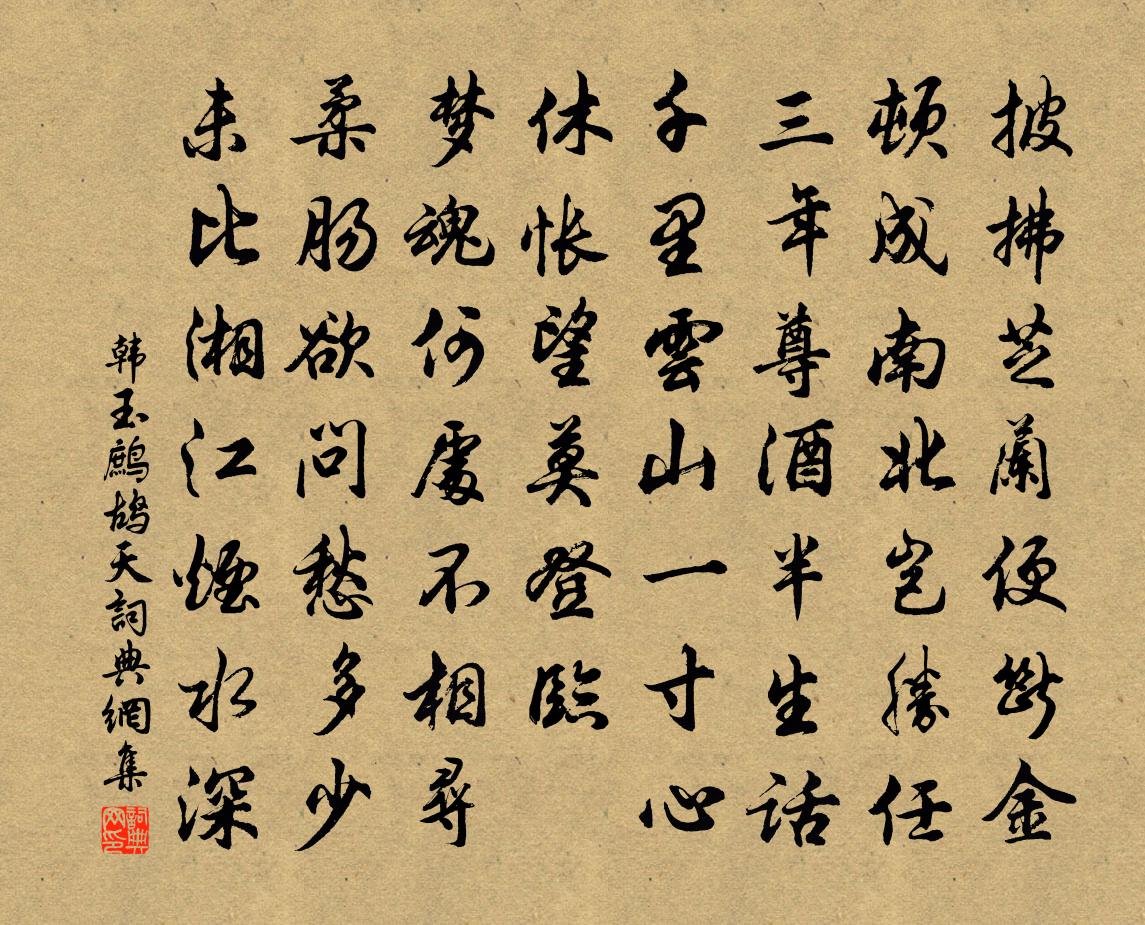 披拂芝蘭便斷金
頓成南北豈勝任
三年尊酒半生話
千里雲山一寸心
休悵望莫登臨
梦魂何處不相尋
柔腸欲問愁多少
未比湘江煙水深
韩玉鷓鴣天詞典網集
詞典网印